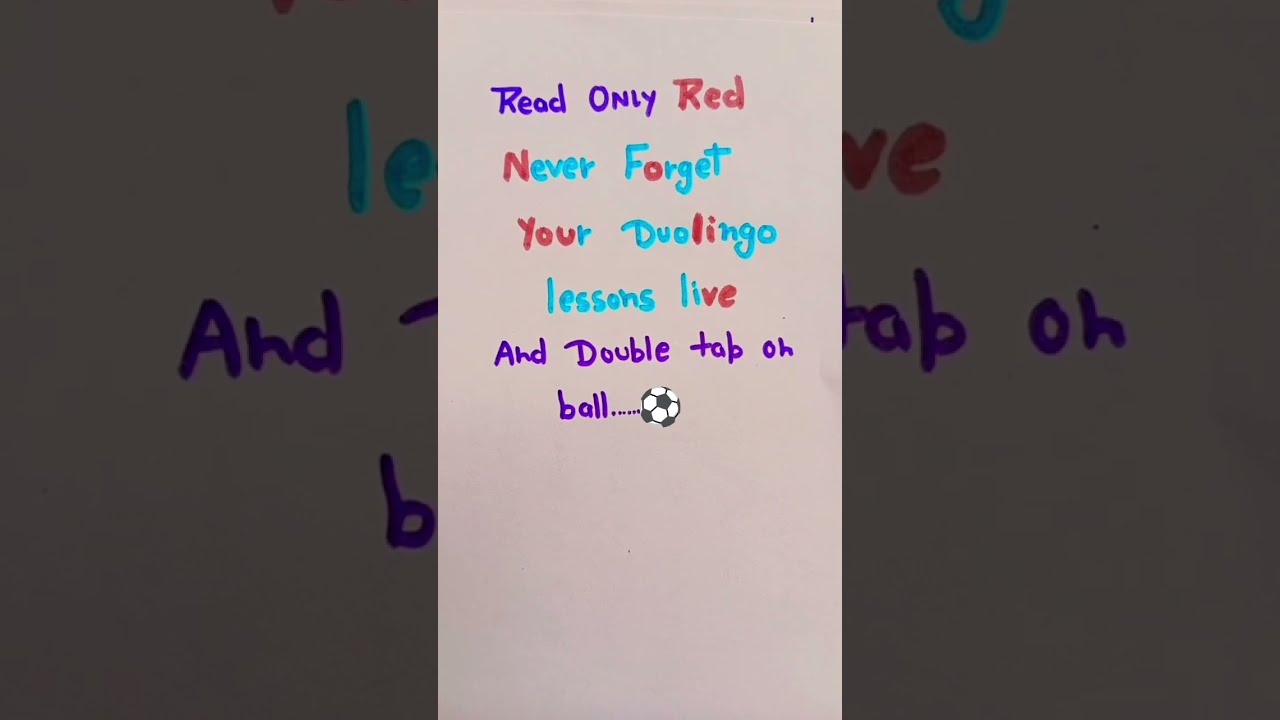 Read ONLY Red
Never Forget
Your Duolingo
lessons live
And Double tab on
ball......⚽